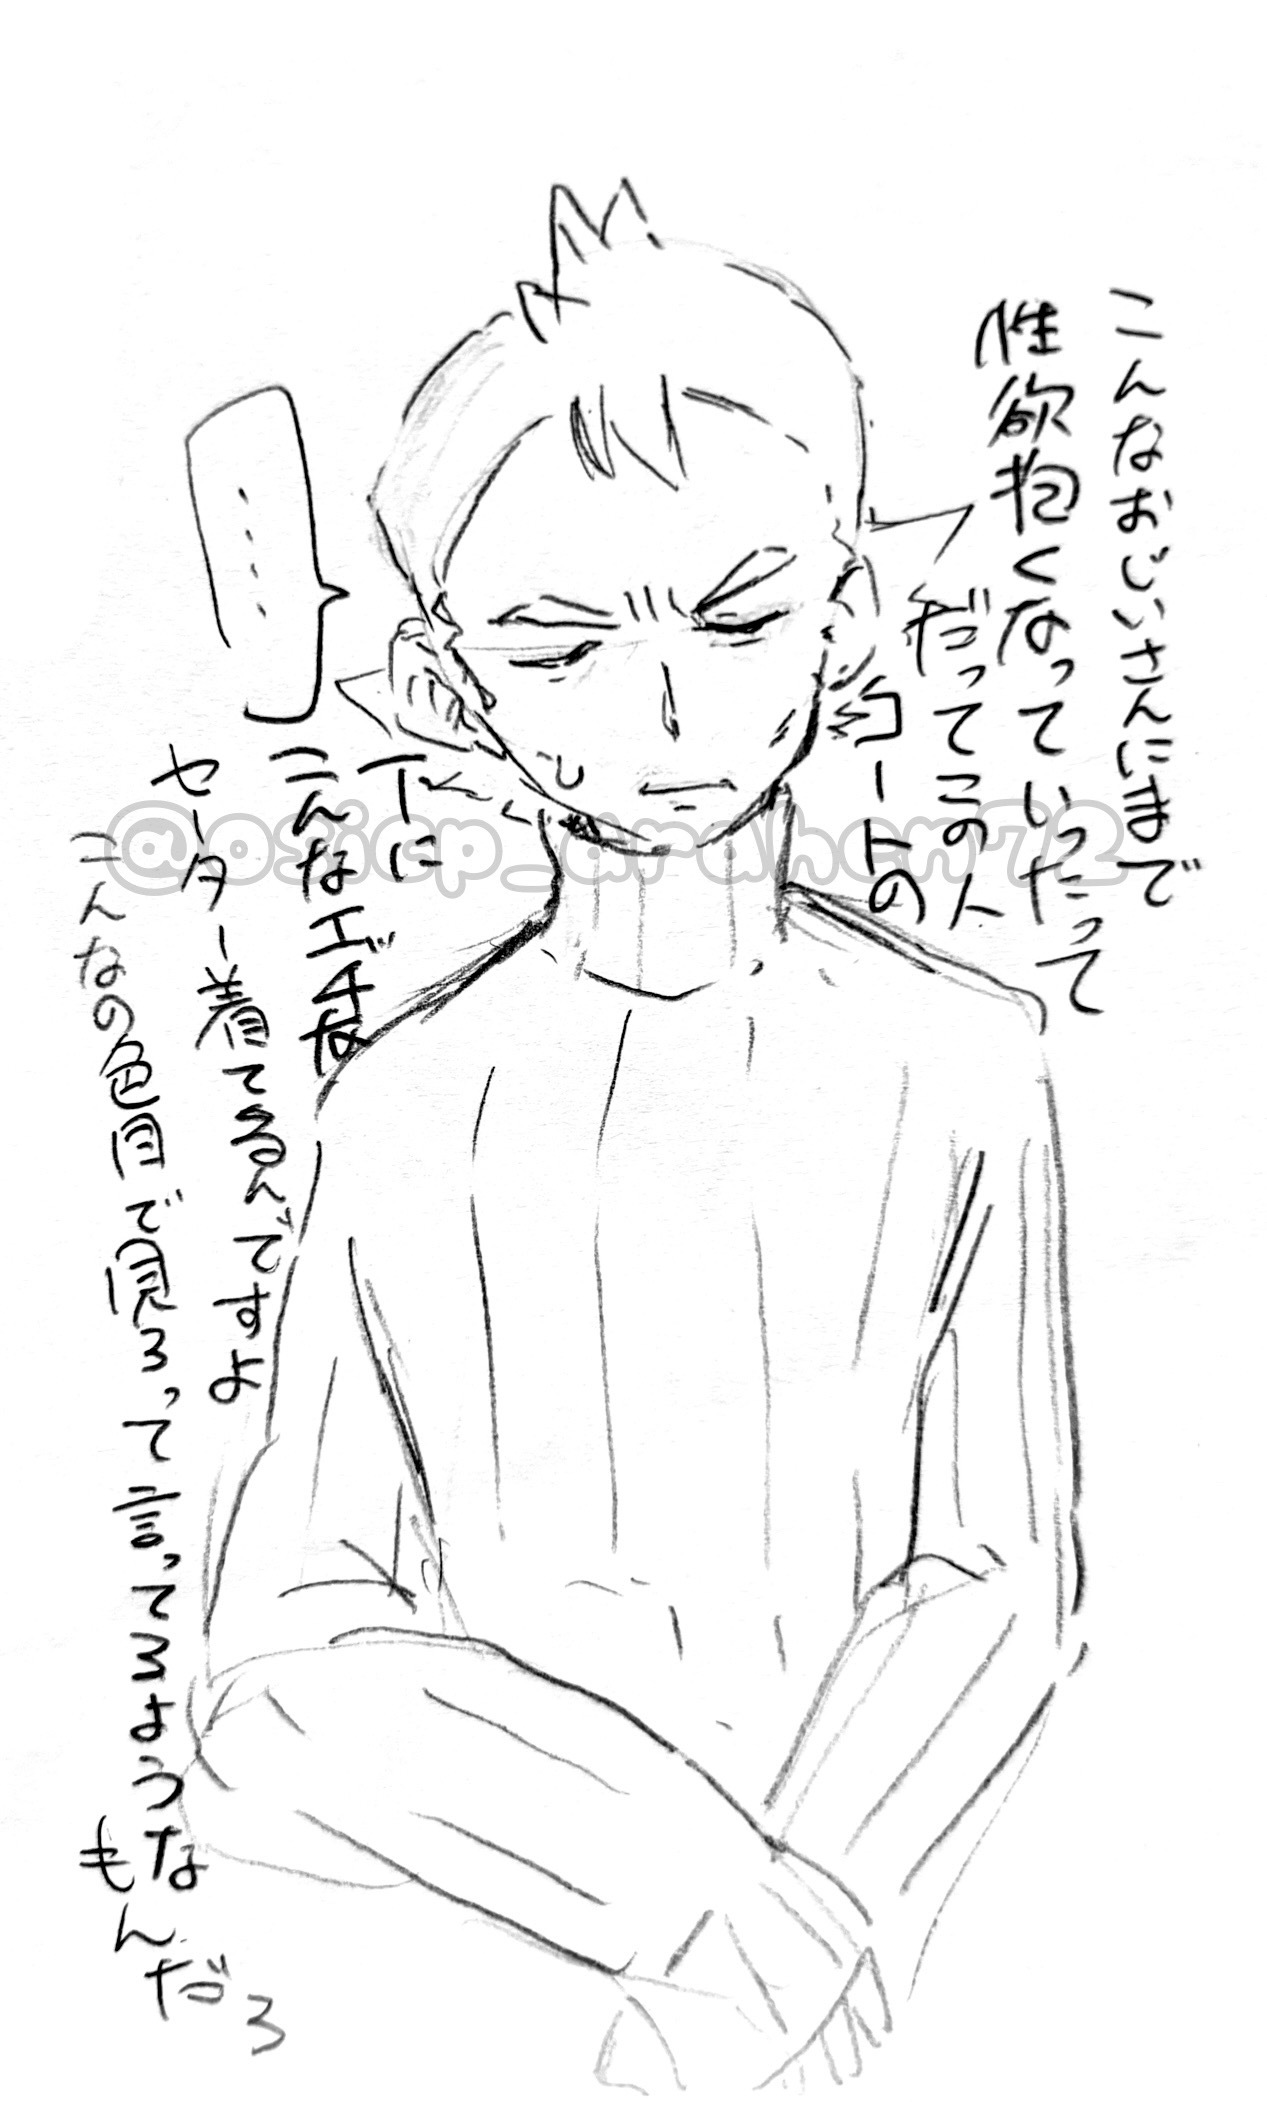 こんなおじいさんにまで
性欲抱くなっていったって
だってこの人
コートの
下に
こんなエッチな
セーター着てるんですよ
‥‥‥
こんなの色目で見ろって言ってるような
もんだろ
@osiep_arahan72